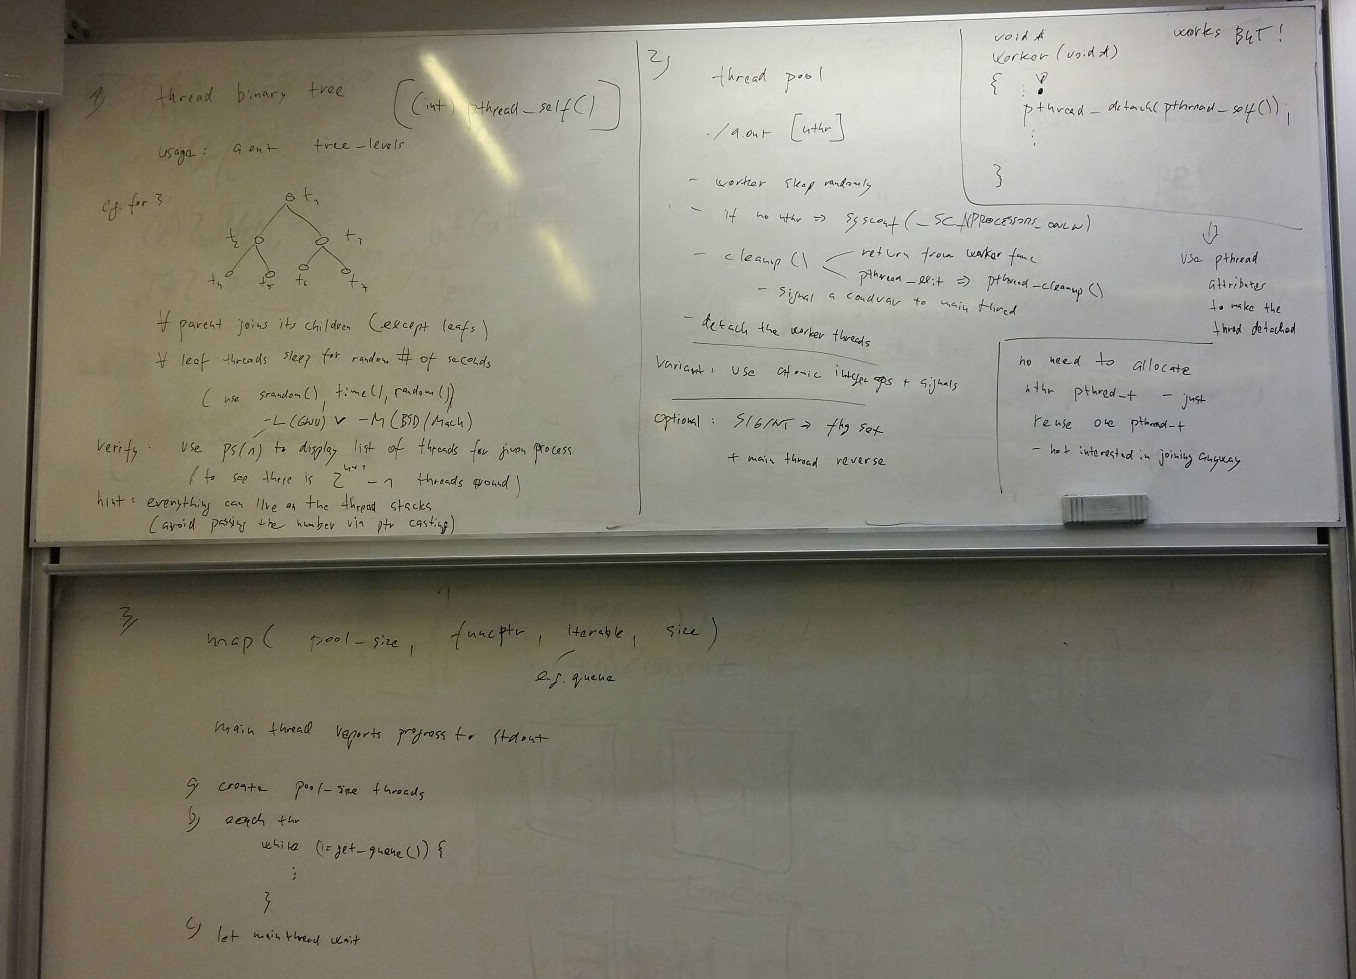 1) thread binary tree [(int) pthread_self()]
usage: a.out tree_levels
eg. for 3:
t1
t2 t3
t4 t5 t6 t7
∀ parent joins its children (except leafs)
∀ leaf threads sleep for random # of seconds
(use srandom(), time(), random())
-L (GNU) v -M (BSD/Mach)
verify: use ps(1) to display list of threads for given process
(to see there is 2 - 1 threads around)
hint: everything can live on the thread stacks
(avoid passing the number via ptr casting)
2)
thread pool
./a.out [nthr]
- worker sleep randomly
- if no nthr => sysconf(_SC_NPROCESSORS_ONLN)
- cleanup() return from worker func
pthread_exit => pthread_cleanup()
- signal a condvar to main thred
- detach the worker threads
variant: use atomic integer ops + signals
optional: SIGINT => flag set
+ main thread reverse
works BUT!
void *
worker (void *)
{
pthread_detach(pthread_self());
:
}
⇓
use pthread
attributes
to make the
thred detached
no need to allocate
nthr pthred_t - just
reuse one pthread_t
- not interested in joining anyway
3)
map( pool_size, funcptr, iterable, size)
e.g. queue
main thread reports progress to stdout
a) create pool_size threads
b) each thr
while (i=get_queue()) {
:
}
c) let main thread wait